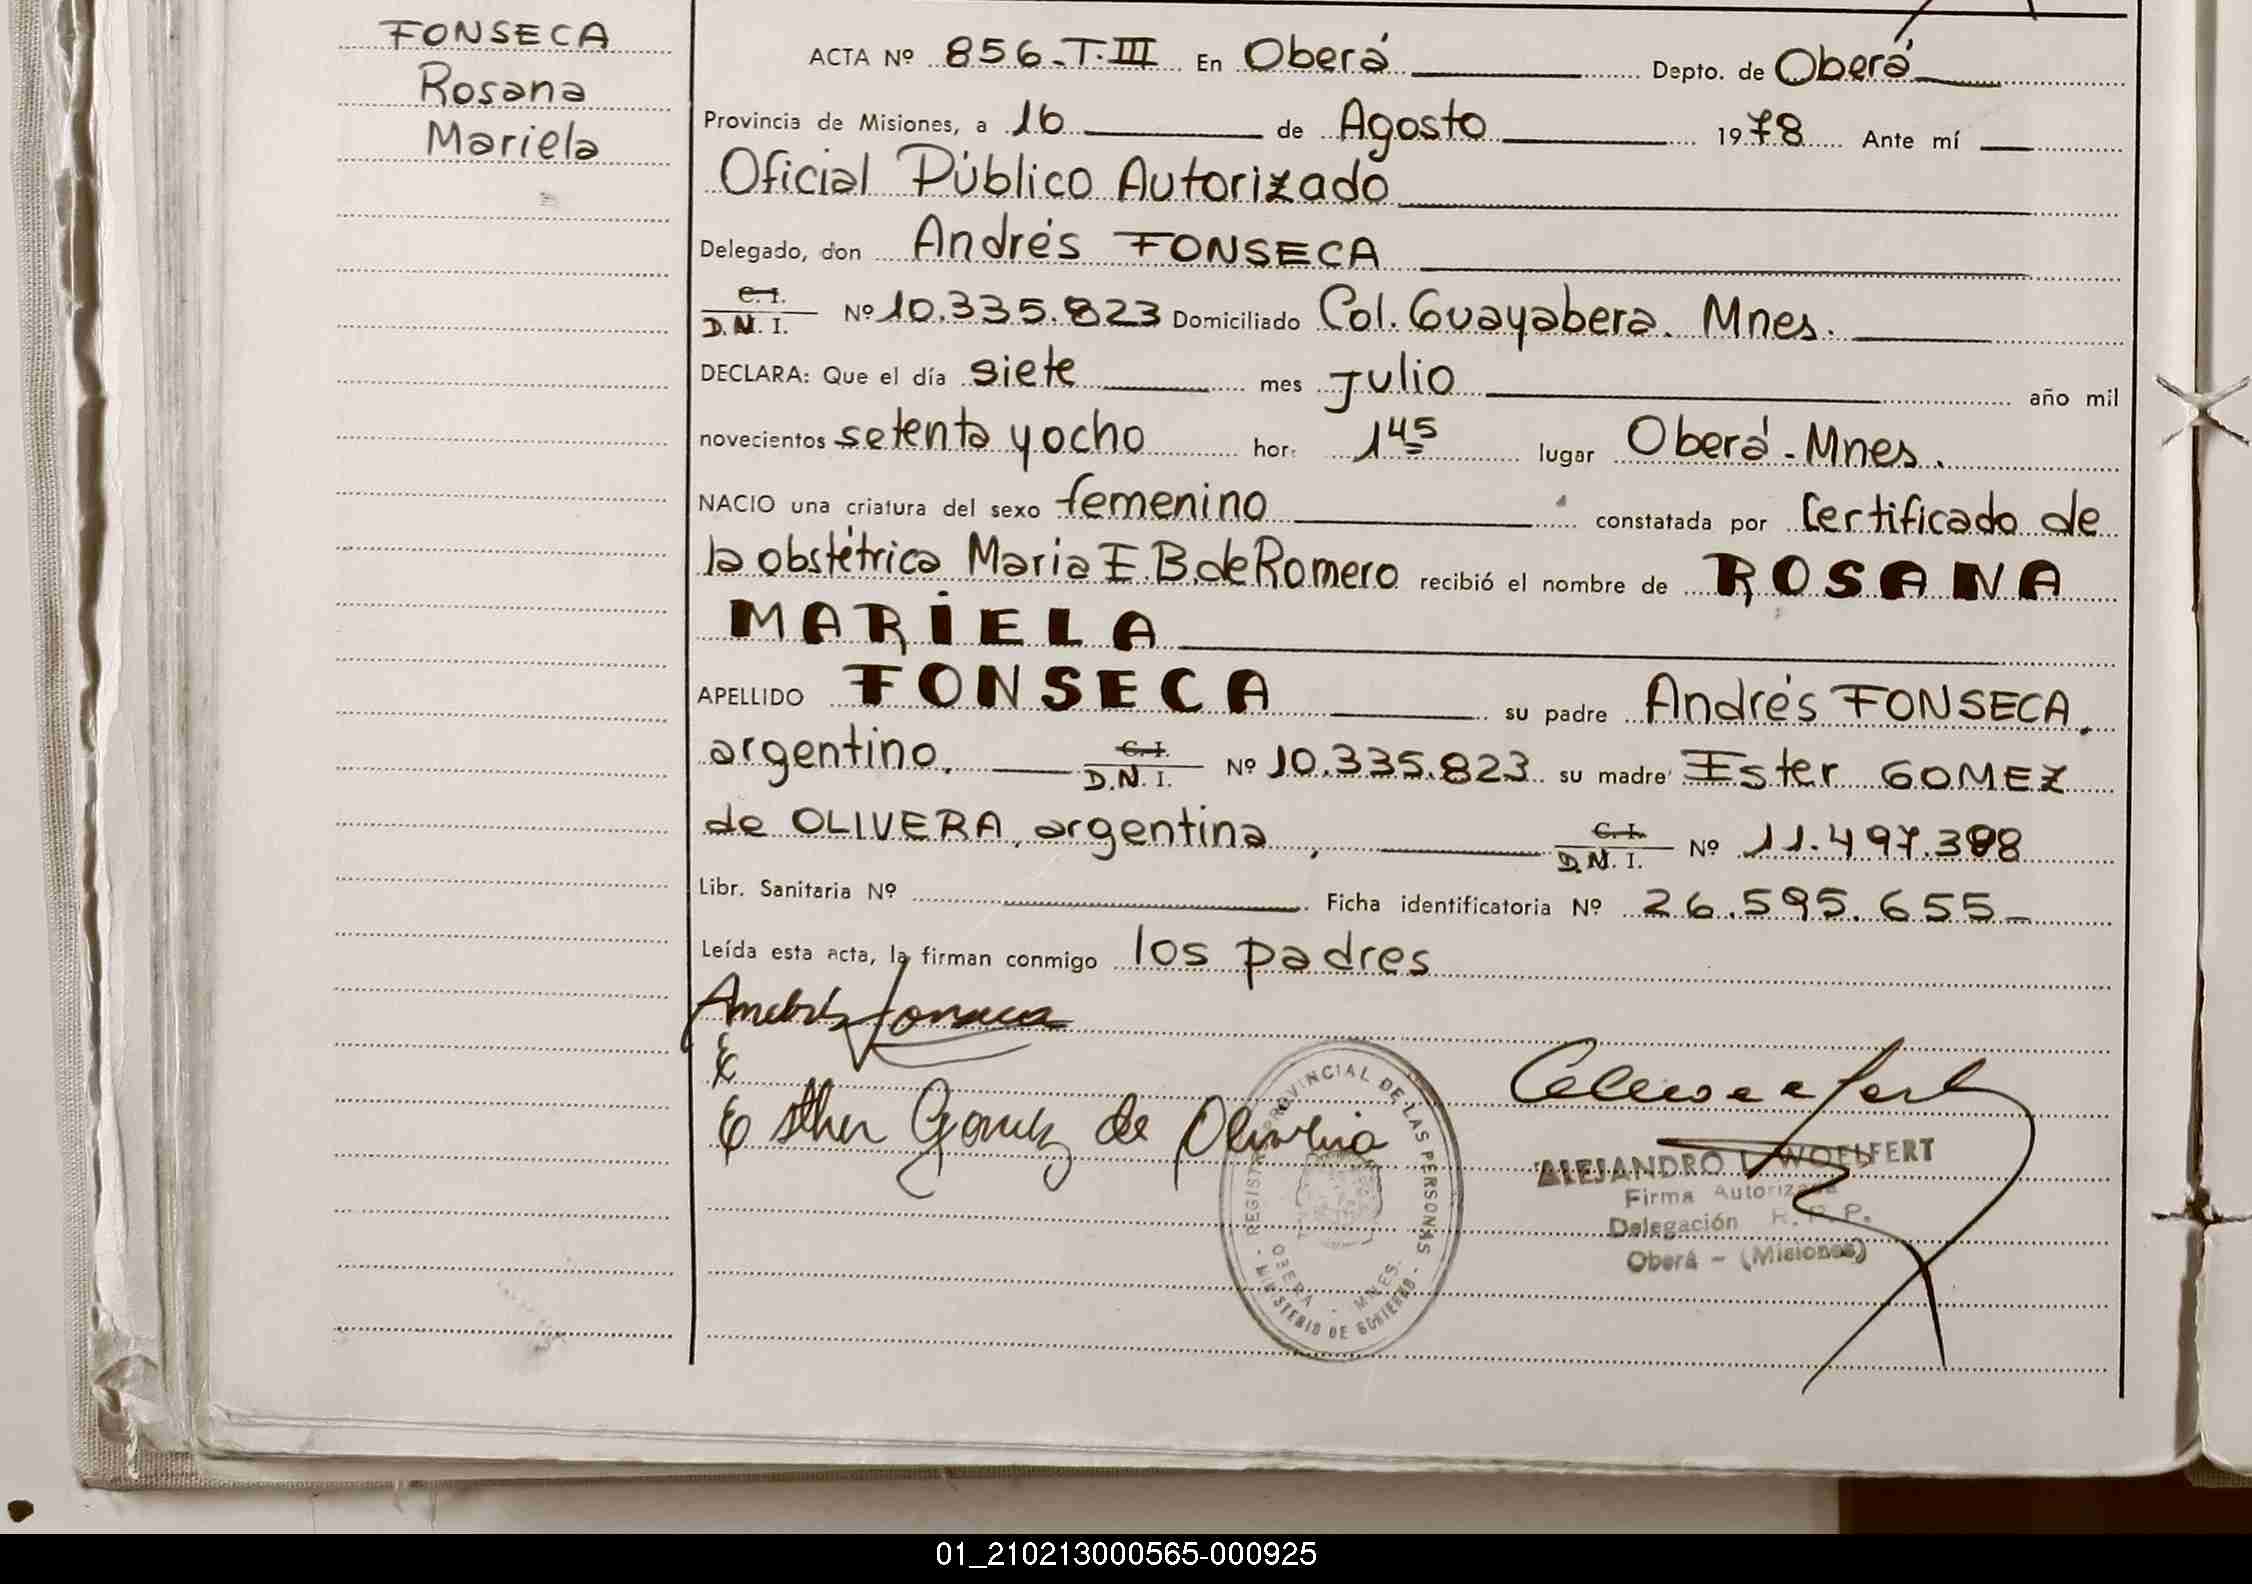 FONSECA
Rosana
Mariela
ACTA Nº 856-T.III En Oberá Depto. de Oberá
Provincia de Misiones, a 16 de Agosto 1978 Ante mí
Oficial Público Autorizado
Delegado, don Andrés FONSECA
C. I.
D. N. I. Nº 10.335.823 Domiciliado Col. Guayabera. Mnes.
DECLARA: Que el día siete mes julio año mil
novecientos setenta y ocho hor: 1 45 lugar Oberá - Mnes.
NACIO una criatura del sexo femenino constatada por Certificado de
la obstétrica Maria E. B. de Romero recibió el nombre de ROSANA
MARIELA
APELLIDO FONSECA su padre Andrés FONSECA,
argentino, C. I. D. N. I. Nº 10.335.823 su madre Ester GOMEZ
de OLIVERA, argentina, C. I. D. N. I. Nº 11.497.398
Libr. Sanitaria Nº Ficha identificatoria Nº 26.595.655-
Leída esta acta, la firman conmigo los padres
Andrés Fonseca
E
Esther Gomez de Oliveira
REGISTRO PROVINCIAL DE LAS PERSONAS
OBERA - MNES.
MINISTERIO DE GOBIERNO
ALEJANDRO WOELFERT
Firma Autorizada
Delegación R. P. P.
Oberá - (Misiones)
01_210213000565-000925